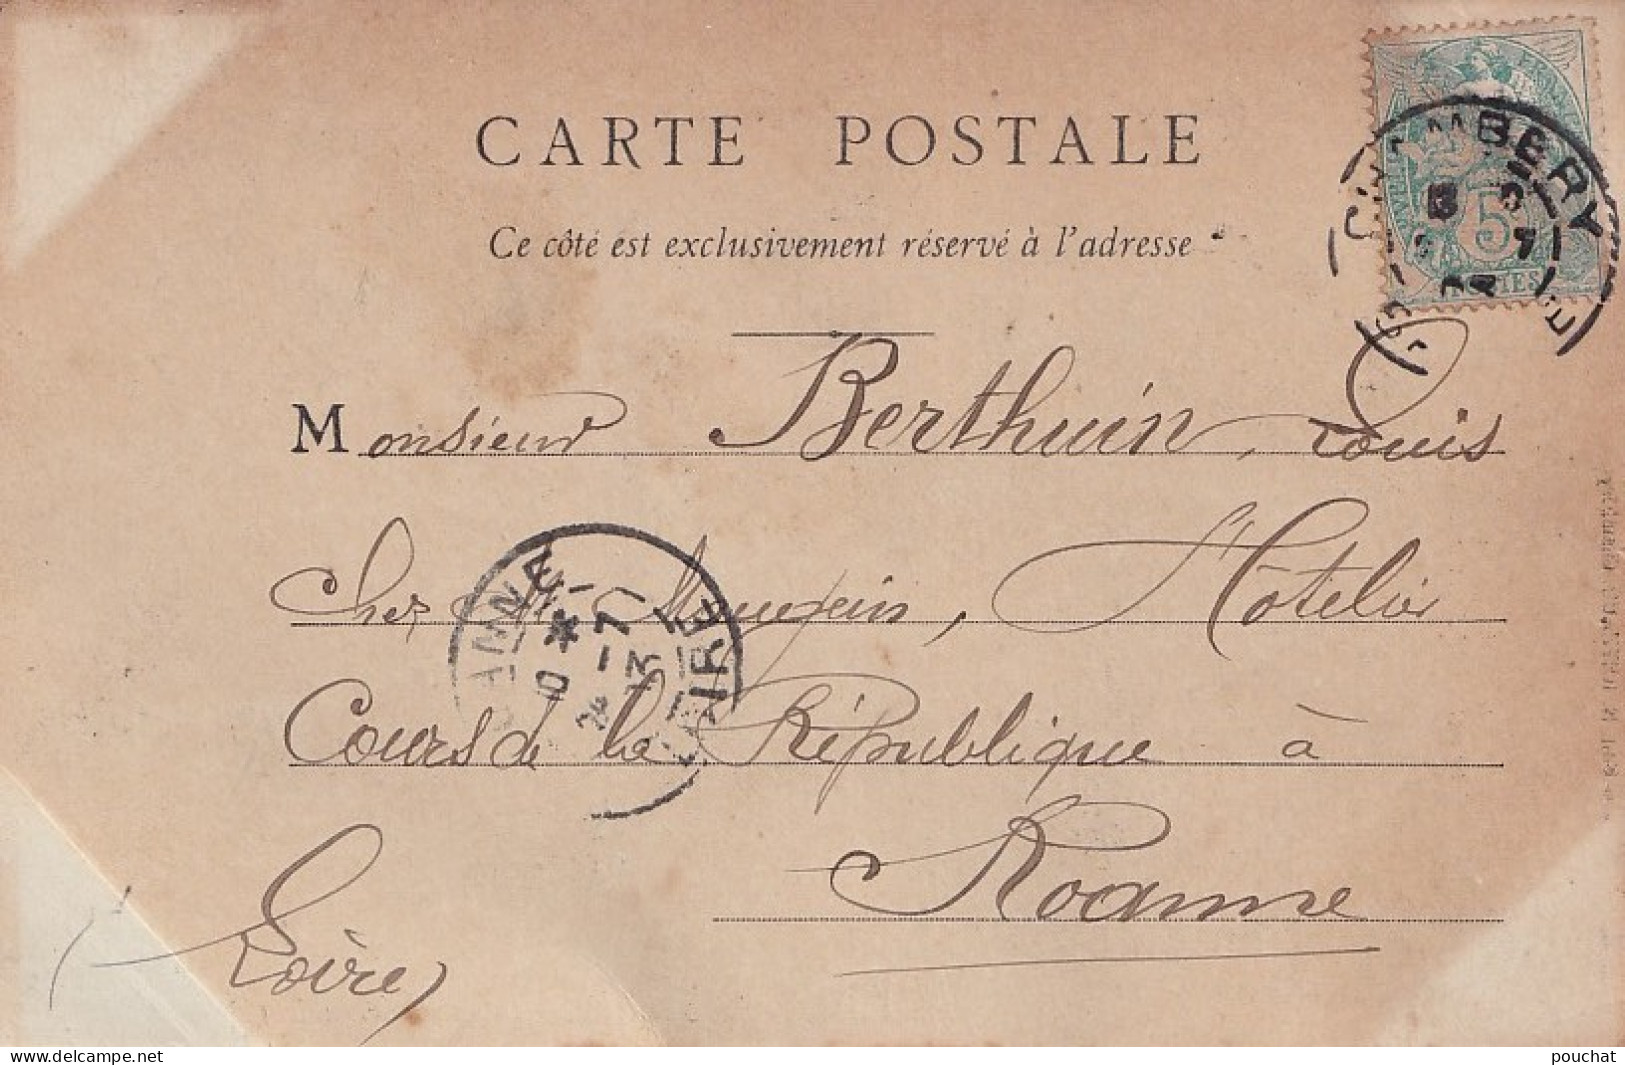 CARTE POSTALE
Ce côté est exclusivement réservé à l'adresse
CHAMBERY
5
POSTES
Monsieur Berthuin, Louis
Chez M. Mougein, Hôtelier
Cours de la République à
Roanne
(Loire)
ROANNE
LOIRE
delcampe.net
pouchat